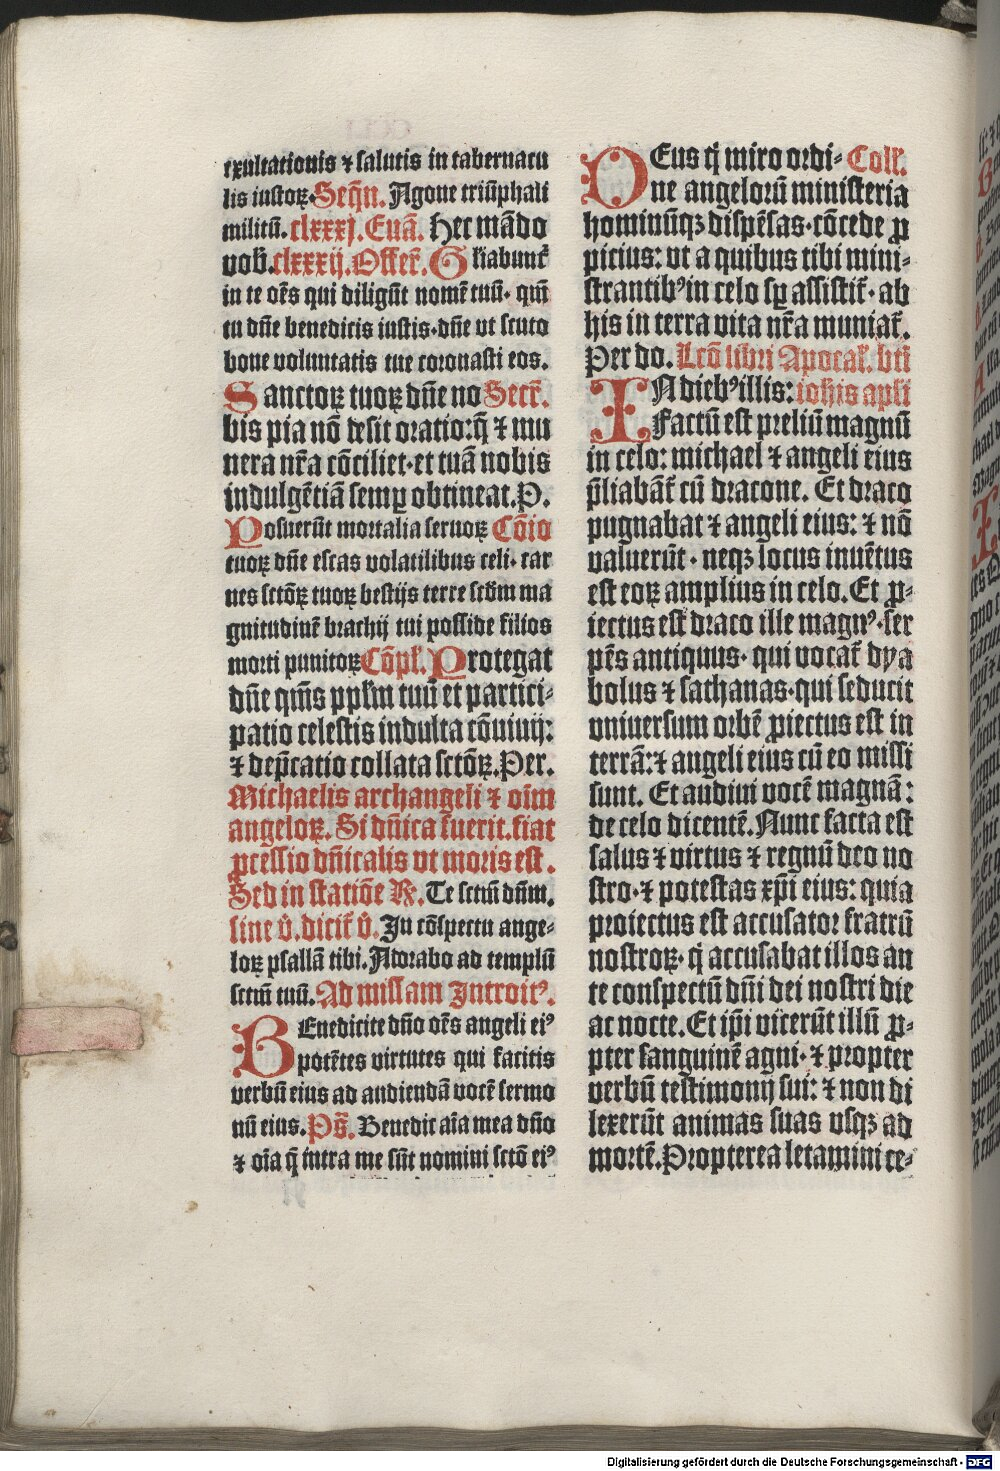 exultationis ⁊ salutis in tabernacu
lis iustoꝝ. Seqñ. Agone triũphali
militũ. clxxxj. Euã. Hec mãdo
vob̃. clxxxij. Offer̃. Gl̃iabunt̃
in te oẽs qui diligũt nomẽ tuũ · qm̃
tu dñe benedicis iustis · dñe vt scuto
bone voluntatis tue coronasti eos.
Sanctoꝝ tuoꝝ dñe no Secr̃.
bis pia nõ desit oratio: q̃ ⁊ mu
nera nr̃a cõciliet · et tuã nobis
indulgẽtiã semꝑ obtineat. P.
Posuerũt mortalia seruoꝝ Cõio
tuoꝝ dñe escas volatilibus celi · car
nes sctõꝝ tuoꝝ bestijs terre scd̃m ma
gnitudinẽ brachij tui posside filios
morti punitoꝝ Cõpl̃. Protegat
dñe qm̃s ppl̃m tuũ et partici-
patio celestis indulta cõuiuij:
⁊ dep̃catio collata sctõꝝ. Per.
Michaelis archangeli ⁊ oĩm
angeloꝝ. Si dñica fuerit. fiat
ꝓcessio dñicalis vt moris est.
Sed in statiõe R̃. Te sctm̃ dñm.
sine v̓. dicit̃ v̓. In cõspectu ange-
loꝝ psallã tibi. Adorabo ad templũ
sctm̃ tuũ. Ad missam Introitꝰ.
Benedicite dño oẽs angeli eiꝰ
potẽtes virtutes qui facitis
verbũ eius ad audiendã vocẽ sermo
nũ eius. Ps̃. Benedic aĩa mea dño
⁊ oĩa q̃ intra me sũt nomini sctõ eiꝰ
Deus q̃ miro ordi- Coll̃.
ne angelorũ ministeria
hominũqꝫ dispẽsas · cõcede ꝓ
picius: vt a quibus tibi mini-
strantibꝰ in celo sꝑ assistit̃ · ab
his in terra vita nr̃a muniat̃.
Per do. Lcõ libri Apocal̃. bt̃i
In diebꝰ illis: iohis apl̃i
Factũ est preliũ magnũ
in celo: michael ⁊ angeli eius
p̃liabãt̃ cũ dracone. Et draco
pugnabat ⁊ angeli eius: ⁊ nõ
valuerũt · neqꝫ locus inuẽtus
est eoꝝ amplius in celo. Et ꝓ-
iectus est draco ille magnꝰ · ser
pẽs antiquus · qui vocat̃ dya
bolus ⁊ sathanas · qui seducit
vniuersum orbẽ ꝓiectus est in
terrã: ⁊ angeli eius cũ eo missi
sunt. Et audiui vocẽ magnã:
de celo dicentẽ. Nunc facta est
salus ⁊ virtus ⁊ regnũ deo no
stro · ⁊ potestas xp̃i eius: quia
proiectus est accusator fratrũ
nostroꝝ · q̃ accusabat illos an
te conspectũ dñi dei nostri die
ac nocte. Et ip̃i vicerũt illũ ꝓ-
pter sanguinẽ agni · ⁊ propter
verbũ testimonij sui: ⁊ non di
lexerũt animas suas vsqꝫ ad
mortẽ. Propterea letamini ce-
Digitalisierung gefördert durch die Deutsche Forschungsgemeinschaft - DFG